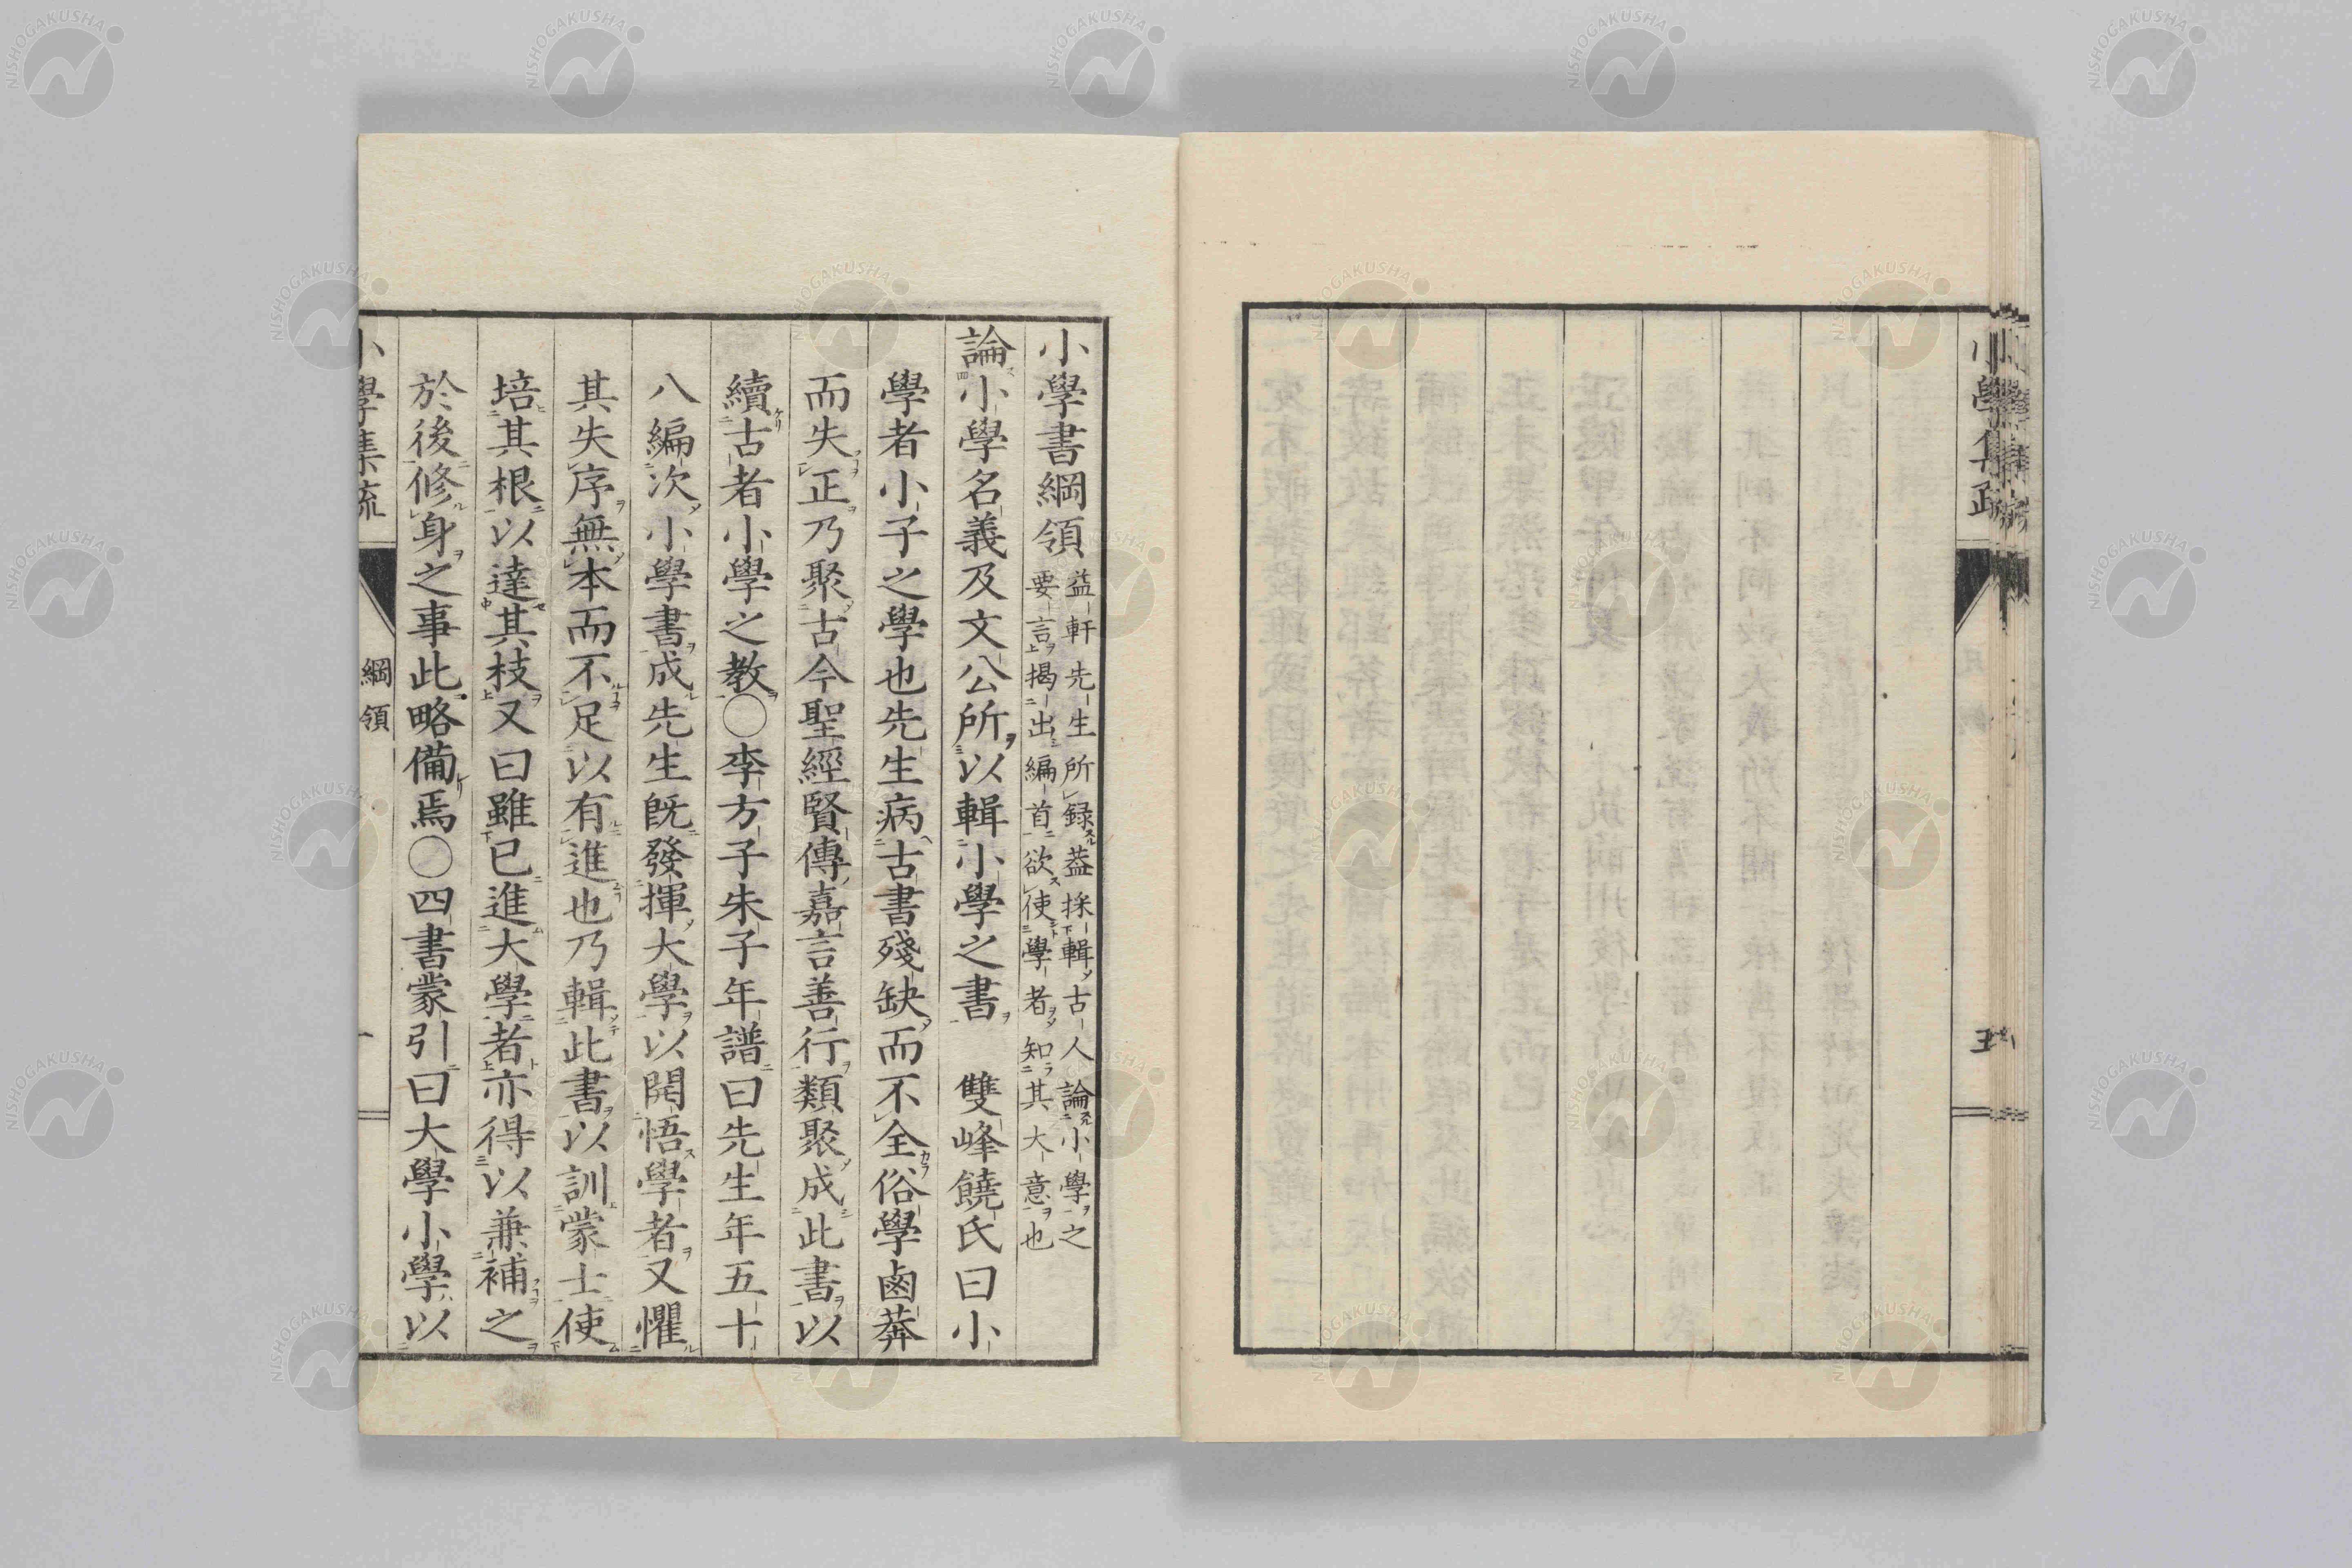 小學集疏
五
小學書綱領 益軒先生所録葢採輯古人論小學之要言揭出編首欲使學者知其大意也
論小學名義及文公所以輯小學之書　雙峰饒氏曰小
學者小子之學也先生病古書殘缺而不全俗學鹵莽
而失正乃聚古今聖經賢傳嘉言善行類聚成此書以
續古者小學之教〇李方子朱子年譜曰先生年五十
八編次小學書成先生旣發揮大學以開悟學者又懼
其失序無本而不足以有進也乃輯此書以訓蒙士使
培其根以達其枝又曰雖已進大學者亦得以兼補之
於後修身之事此略備焉〇四書蒙引曰大學小學以
小學集疏
綱領
一
NISHOGAKUSHA